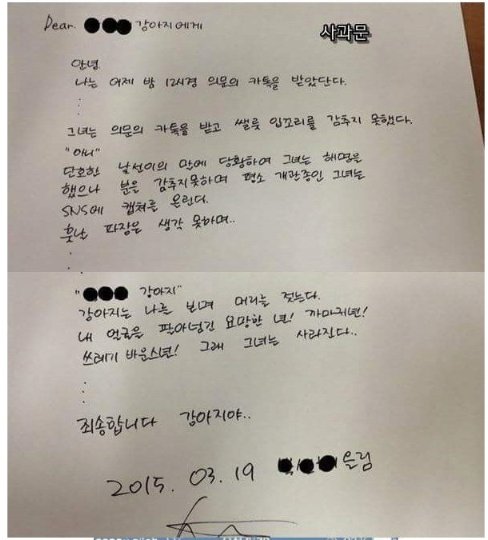 Dear. 강아지에게
사과문
안녕
나는 어제 밤 12시경 의문의 카톡을 받았단다.
:
그녀는 의문의 카톡을 받고 쌜룩 입꼬리를 감추지 못했다.
"아니"
단호한 낯선이의 말에 당황하여 그녀는 해명을
했으나 분을 감추지못하며 평소 개관종인 그녀는
SNS에 캡쳐를 올린다.
훗날 파장은 생각 못하며..
"강아지"
강아지는 나를 보며 머리를 젓는다.
내 얼굴을 팔아넘긴 요망한 년! 까마귀년!
쓰레기 바운스년! 그래 그녀는 사라진다..
:
죄송합니다 강아지야..
2015. 03. 19 올림